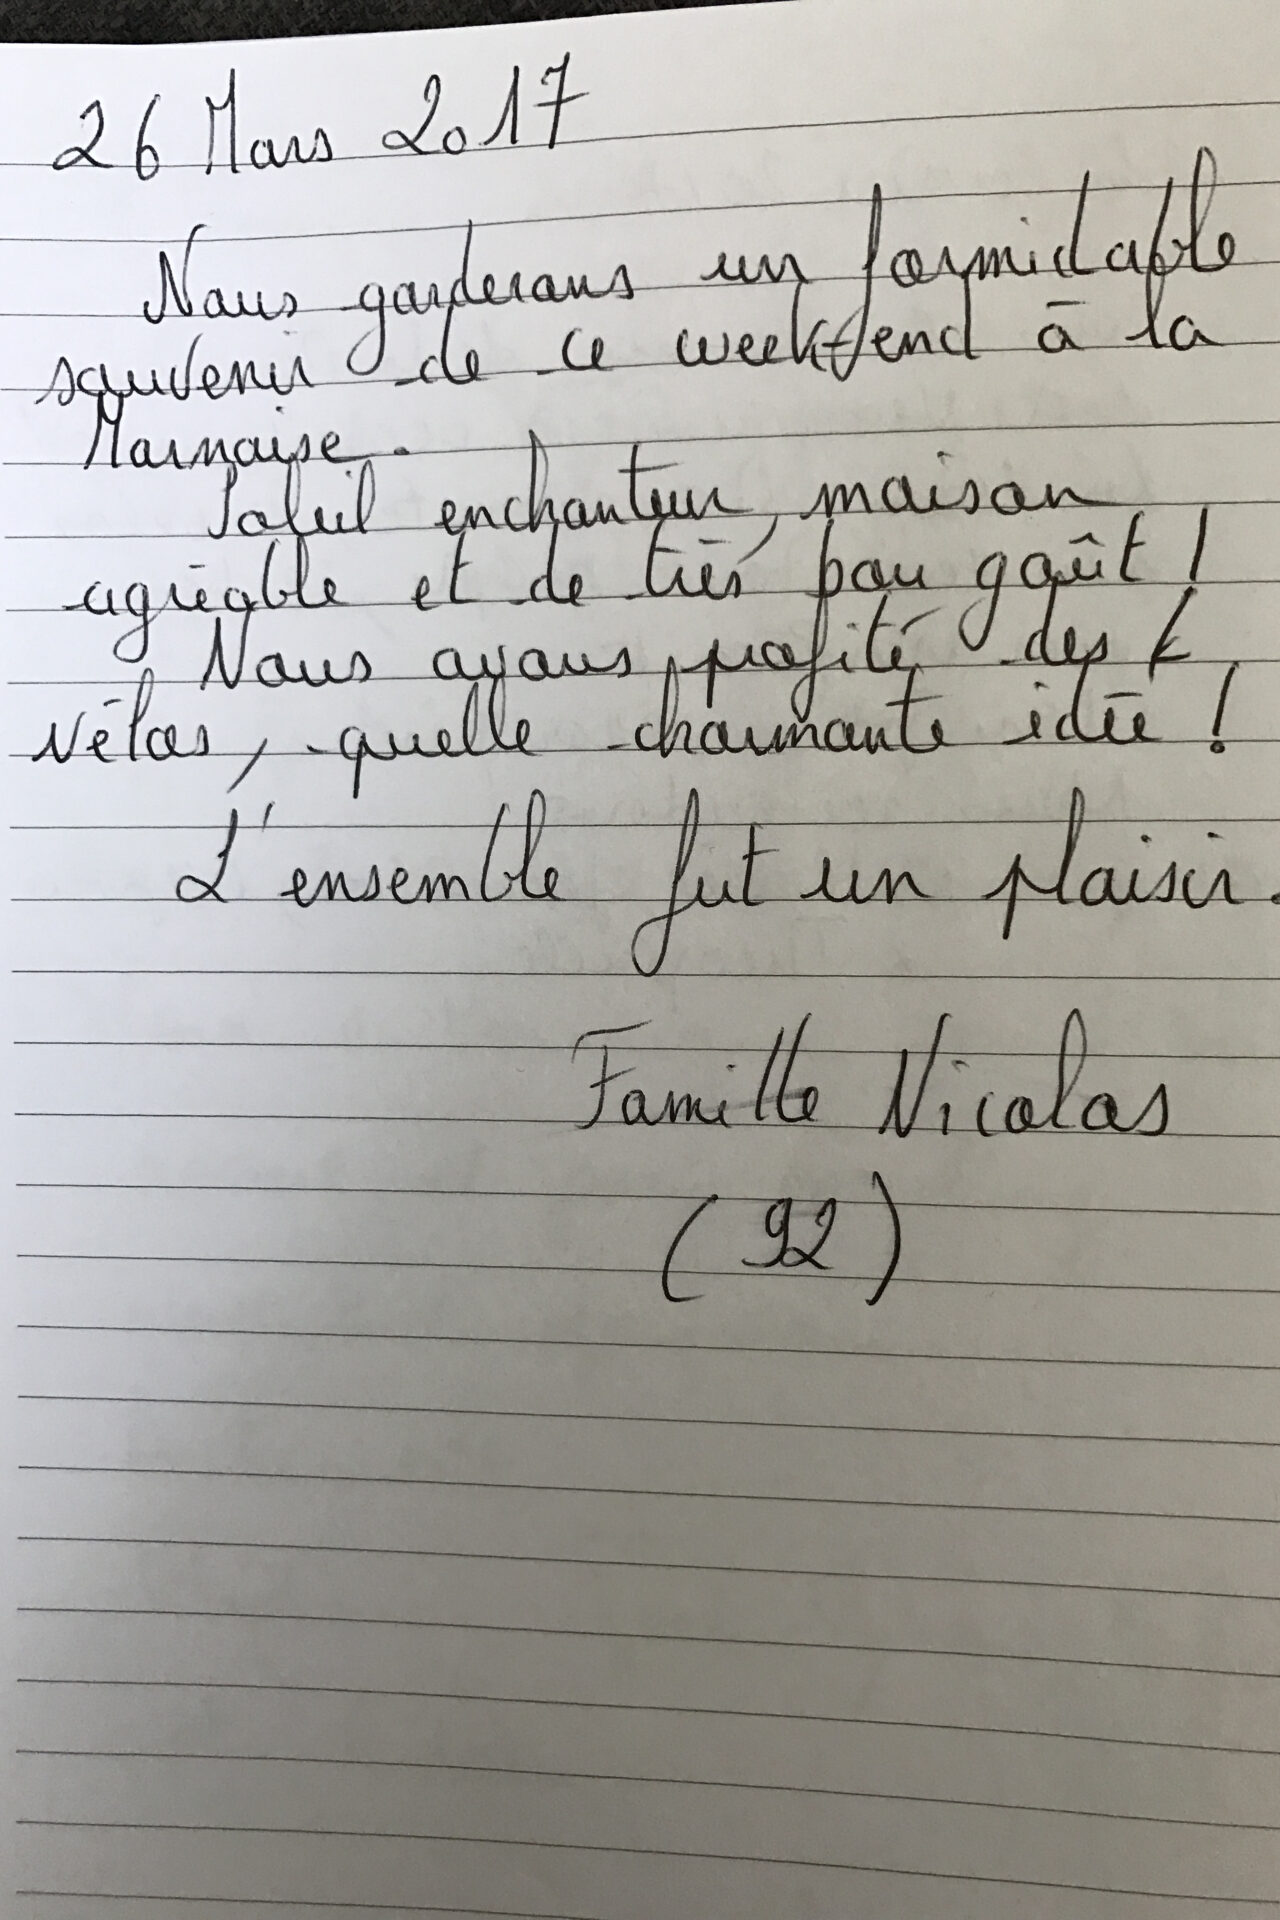 26 Mars 2017
Nous garderons un formidable
souvenir de ce week-end à la
Marnaise.
Soleil enchanteur, maison
agréable et de très bon goût !
Nous avons profité des
vélos, quelle charmante idée !
L'ensemble fut un plaisir.
Famille Nicolas
(92)